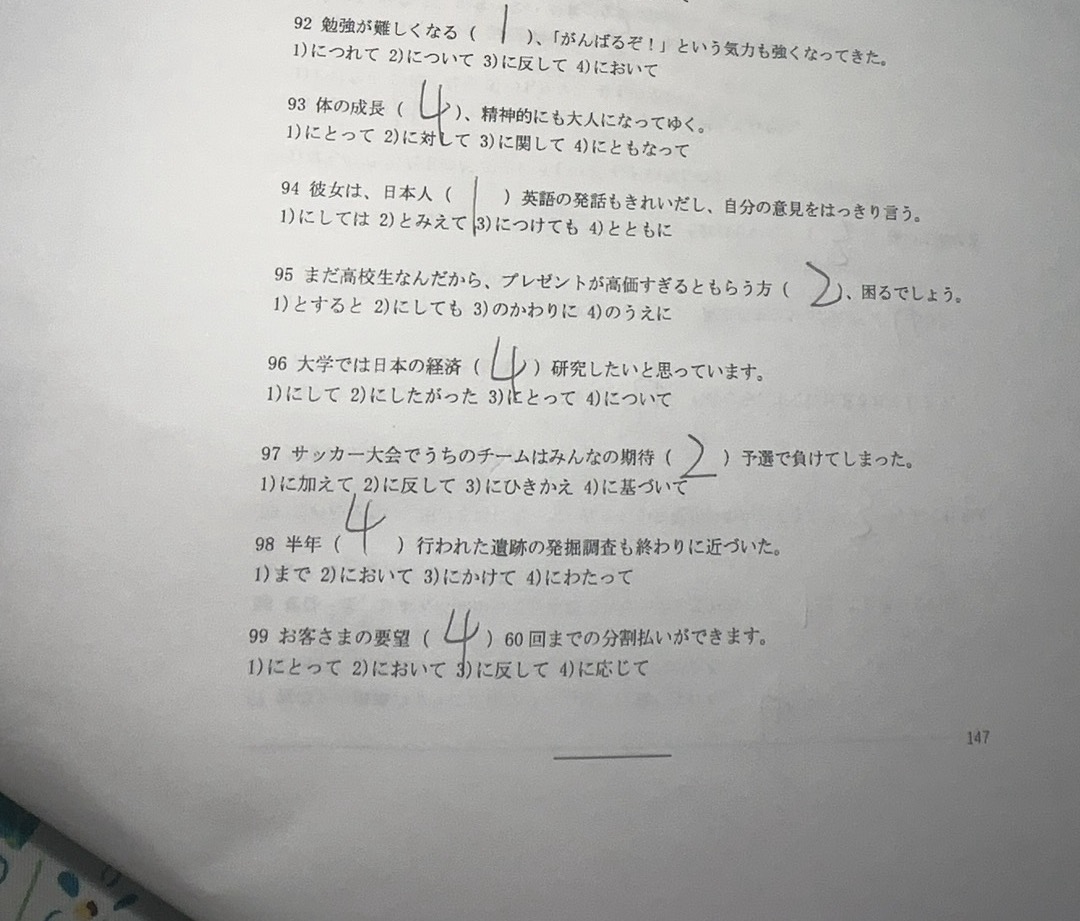 92 勉強が難しくなる ( 1 )、「がんばるぞ！」という気力も強くなってきた。
1)につれて 2)について 3)に反して 4)において
93 体の成長 ( 4 )、精神的にも大人になってゆく。
1)にとって 2)に対して 3)に関して 4)にともなって
94 彼女は、日本人 ( 1 ) 英語の発話もきれいだし、自分の意見をはっきり言う。
1)にしては 2)とみえて 3)につけても 4)とともに
95 まだ高校生なんだから、プレゼントが高価すぎるともらう方 ( 2 )、困るでしょう。
1)とすると 2)にしても 3)のかわりに 4)のうえに
96 大学では日本の経済 ( 4 ) 研究したいと思っています。
1)にして 2)にしたがった 3)にとって 4)について
97 サッカー大会でうちのチームはみんなの期待 ( 2 ) 予選で負けてしまった。
1)に加えて 2)に反して 3)にひきかえ 4)に基づいて
98 半年 ( 4 ) 行われた遺跡の発掘調査も終わりに近づいた。
1)まで 2)において 3)にかけて 4)にわたって
99 お客さまの要望 ( 4 ) 60回までの分割払いができます。
1)にとって 2)において 3)に反して 4)に応じて
147